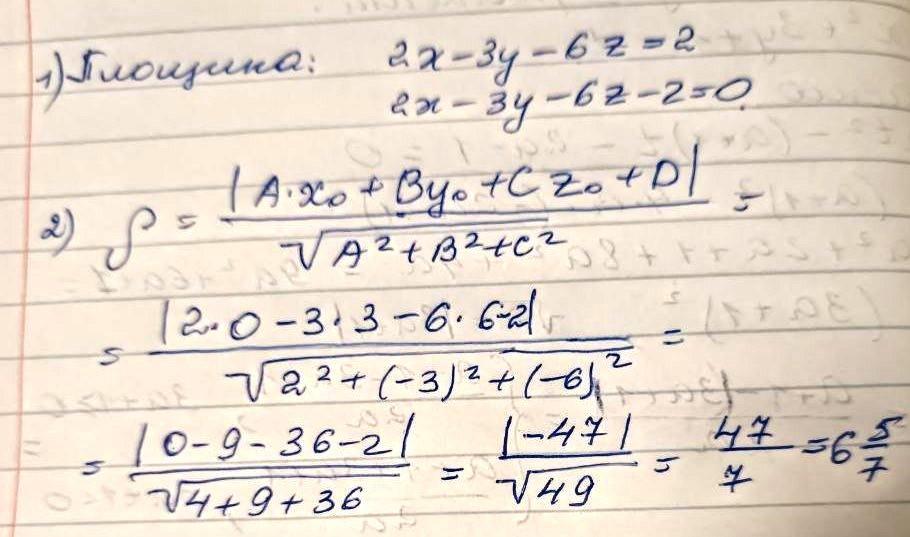 1) Площина: 2x - 3y - 6z = 2
2x - 3y - 6z - 2 = 0.
2) ρ = |A·x₀ + By₀ + Cz₀ + D| / √(A² + B² + C²) =
= |2·0 - 3·3 - 6·6 - 2| / √(2² + (-3)² + (-6)²) =
= |0 - 9 - 36 - 2| / √(4 + 9 + 36) = |-47| / √49 = 47/7 = 6 5/7